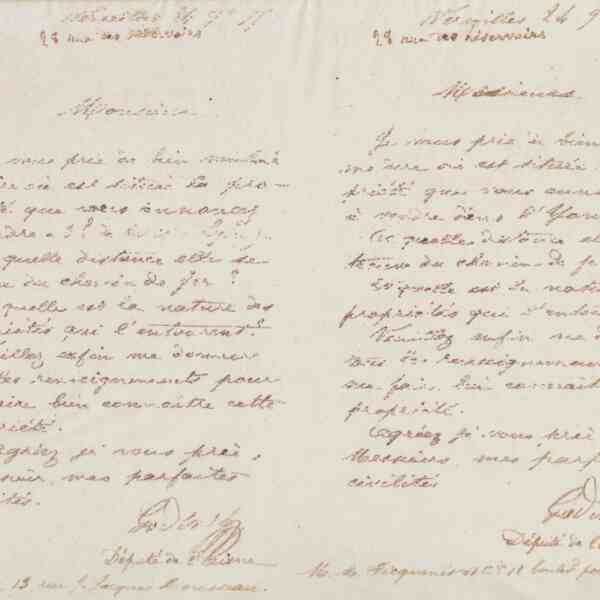 Versailles 24 9
28 rue des réservoirs
Monsieur
vous prie de bien vouloir
dire où est située la pro-
té que vous annoncez
ndre à
quelle distance elle se
du chemin de fer ?
quelle est la nature des
riétés qui l'entourent ?
illez enfin me donner
les renseignements pour
aire bien connaître cette
riété.
agréez je vous prie,
mes parfaites
ités.
Député de l'Aisne
13 rue J. Jacques Rousseau.
Versailles 24 9
28 rue des réservoirs
Messieurs
Je vous prie de bien
me dire où est située
priété que vous
à vendre dans l'Yonne
A quelle distance el
du chemin de fe
Et quelle est la natu
propriétés qui l'ento
Veuillez enfin me d
tous les renseignemen
me faire bien connaît
propriété.
Agréez je vous prie
Messieurs, mes parf
civilités
Député de l
M. de